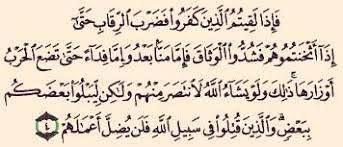 فَإِذَا لَقِيتُمُ ٱلَّذِينَ كَفَرُوا۟ فَضَرْبَ ٱلرِّقَابِ حَتَّىٰٓ
إِذَآ أَثْخَنتُمُوهُمْ فَشُدُّوا۟ ٱلْوَثَاقَ فَإِمَّا مَنًّۢا بَعْدُ وَإِمَّا فِدَآءً حَتَّىٰ تَضَعَ ٱلْحَرْبُ
أَوْزَارَهَا ۚ ذَٰلِكَ وَلَوْ يَشَآءُ ٱللَّهُ لَٱنتَصَرَ مِنْهُمْ وَلَٰكِن لِّيَبْلُوَا۟ بَعْضَكُم
بِبَعْضٍ ۗ وَٱلَّذِينَ قُتِلُوا۟ فِى سَبِيلِ ٱللَّهِ فَلَن يُضِلَّ أَعْمَٰلَهُمْ ٤